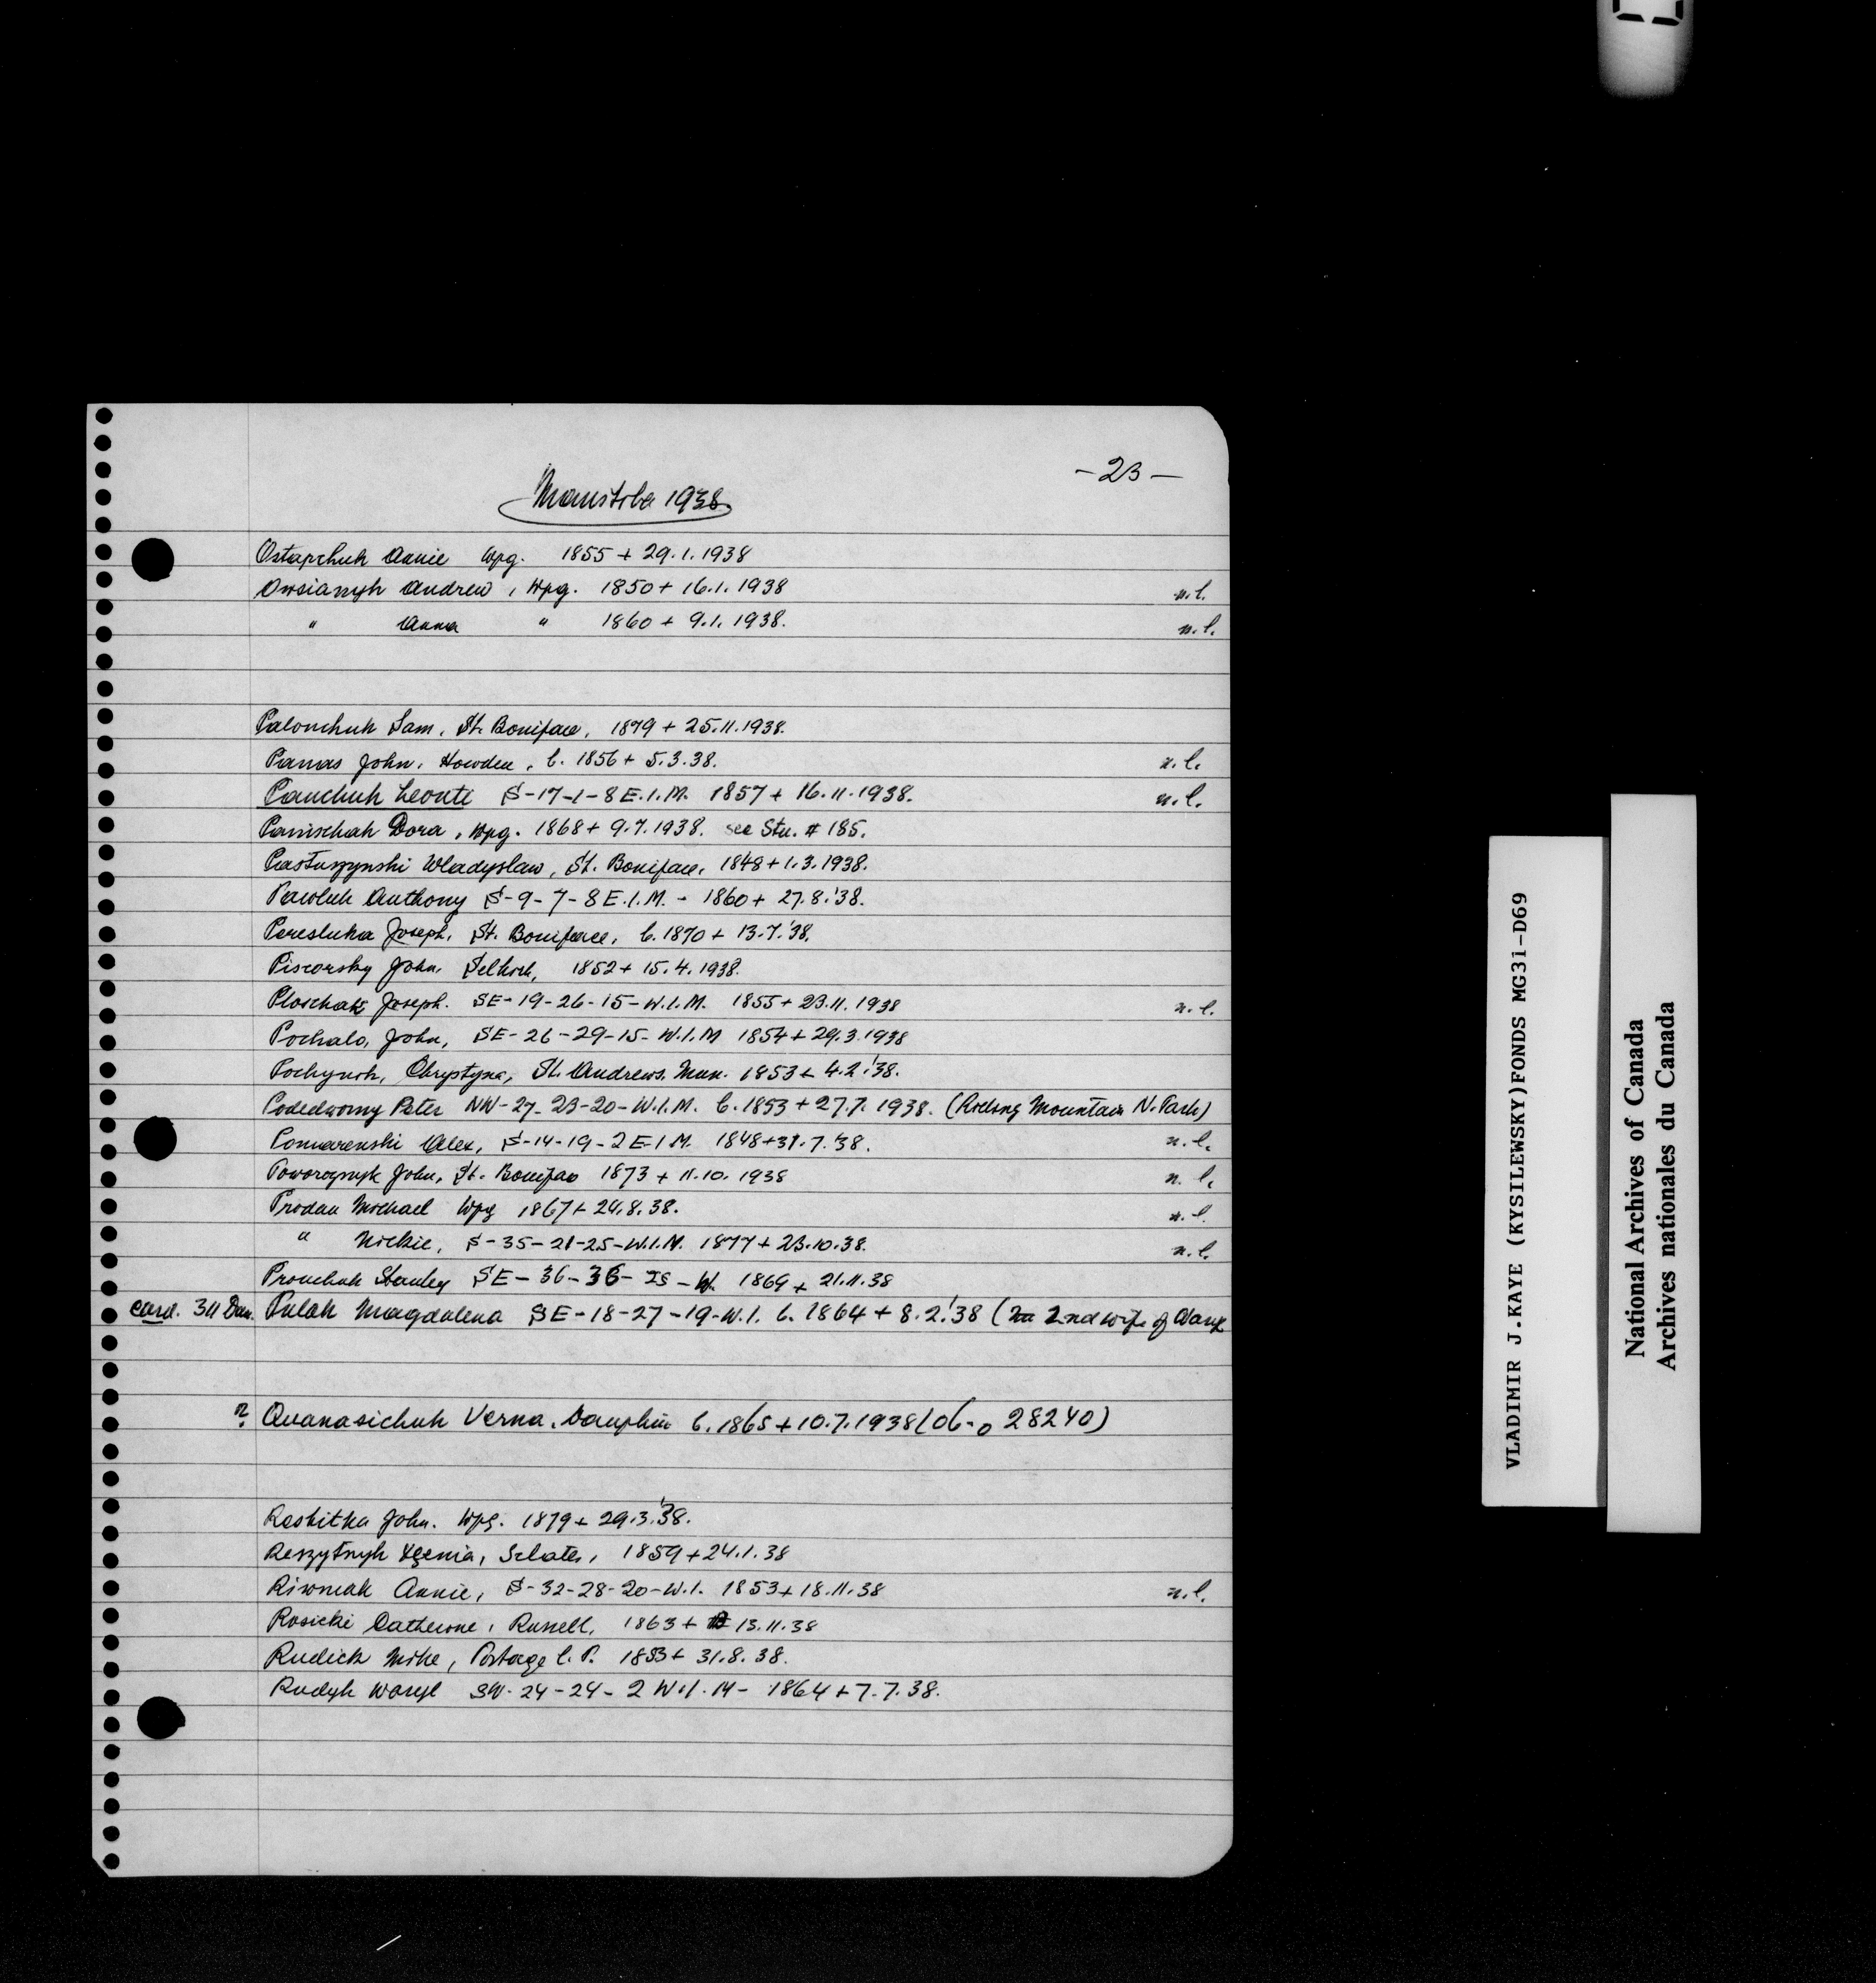 -23-
Manitoba 1938.
Ostapchuk Annie Wpg. 1855 + 29.1.1938
Owsianyk Andrew, Wpg. 1850 + 16.1.1938 n.l.
" Anna " 1860 + 9.1.1938. n.l.
Palonchuk Sam, St. Boniface, 1879 + 25.11.1938.
Panas John, Howden, b. 1856 + 5.3.38. n.l.
Panchuk Leonti S-17-1-8 E.1.M. 1857 + 16.11.1938. n.l.
Panischak Dora, Wpg. 1868 + 9.7.1938. see Stu. # 185.
Pastuszynski Wladyslaw, St. Boniface, 1848 + 1.3.1938.
Pawluk Anthony S-9-7-8 E.1.M. - 1860 + 27.8.'38.
Peresluka Joseph, St. Boniface, b. 1870 + 13.7.'38.
Piscorsky John, Selkirk, 1852 + 15.4.1938.
Ploschak Joseph. SE-19-26-15-W.1.M. 1855 + 23.11.1938 n.l.
Pochalo, John, SE-26-29-15-W.1.M 1854 + 29.3.1938
Pochynok, Chrystyna, St. Andrews. Mun. 1853 + 4.2.'38.
Podedworny Peter NW-27-23-20-W.1.M. b. 1853 + 27.7.1938. (Riding Mountain N. Park)
Pomarenski Alex, S-14-19-2 E-1 M. 1848 + 31.7.'38. n.l.
Poworoznyk John, St. Bonifac 1873 + 11.10.1938 n.l.
Prodan Michael Wpg 1867 + 24.8.38. n.l.
" Nickie, S-35-21-25-W.1.M. 1877 + 23.10.38. n.l.
Pronchuk Stanley SE-36-36-25-W. 1869 + 21.11.38
card. 311 Dau. Pulak Magdalena SE-18-27-19-W.1. b. 1864 + 8.2.'38 (2nd wife of
? Quanasichuk Verna, Dauphin b. 1865 + 10.7.1938 (06-0 28240)
Raskitka John. Wpg. 1879 + 29.3.'38.
Reszytnyk Xenia, Sclater, 1859 + 24.1.38
Riwniak Annie, S-32-28-20-W.1. 1853 + 18.11.38 n.l.
Rosicki Catherine, Russell, 1863 + 13.11.38
Rudick Mike, Portage l. P. 1853 + 31.8.38.
Rudyk Wasyl SW-24-24-2 W.1.M- 1864 + 7.7.38.
VLADIMIR J.KAYE (KYSILEWSKY)FONDS MG31-D69
National Archives of Canada
Archives nationales du Canada